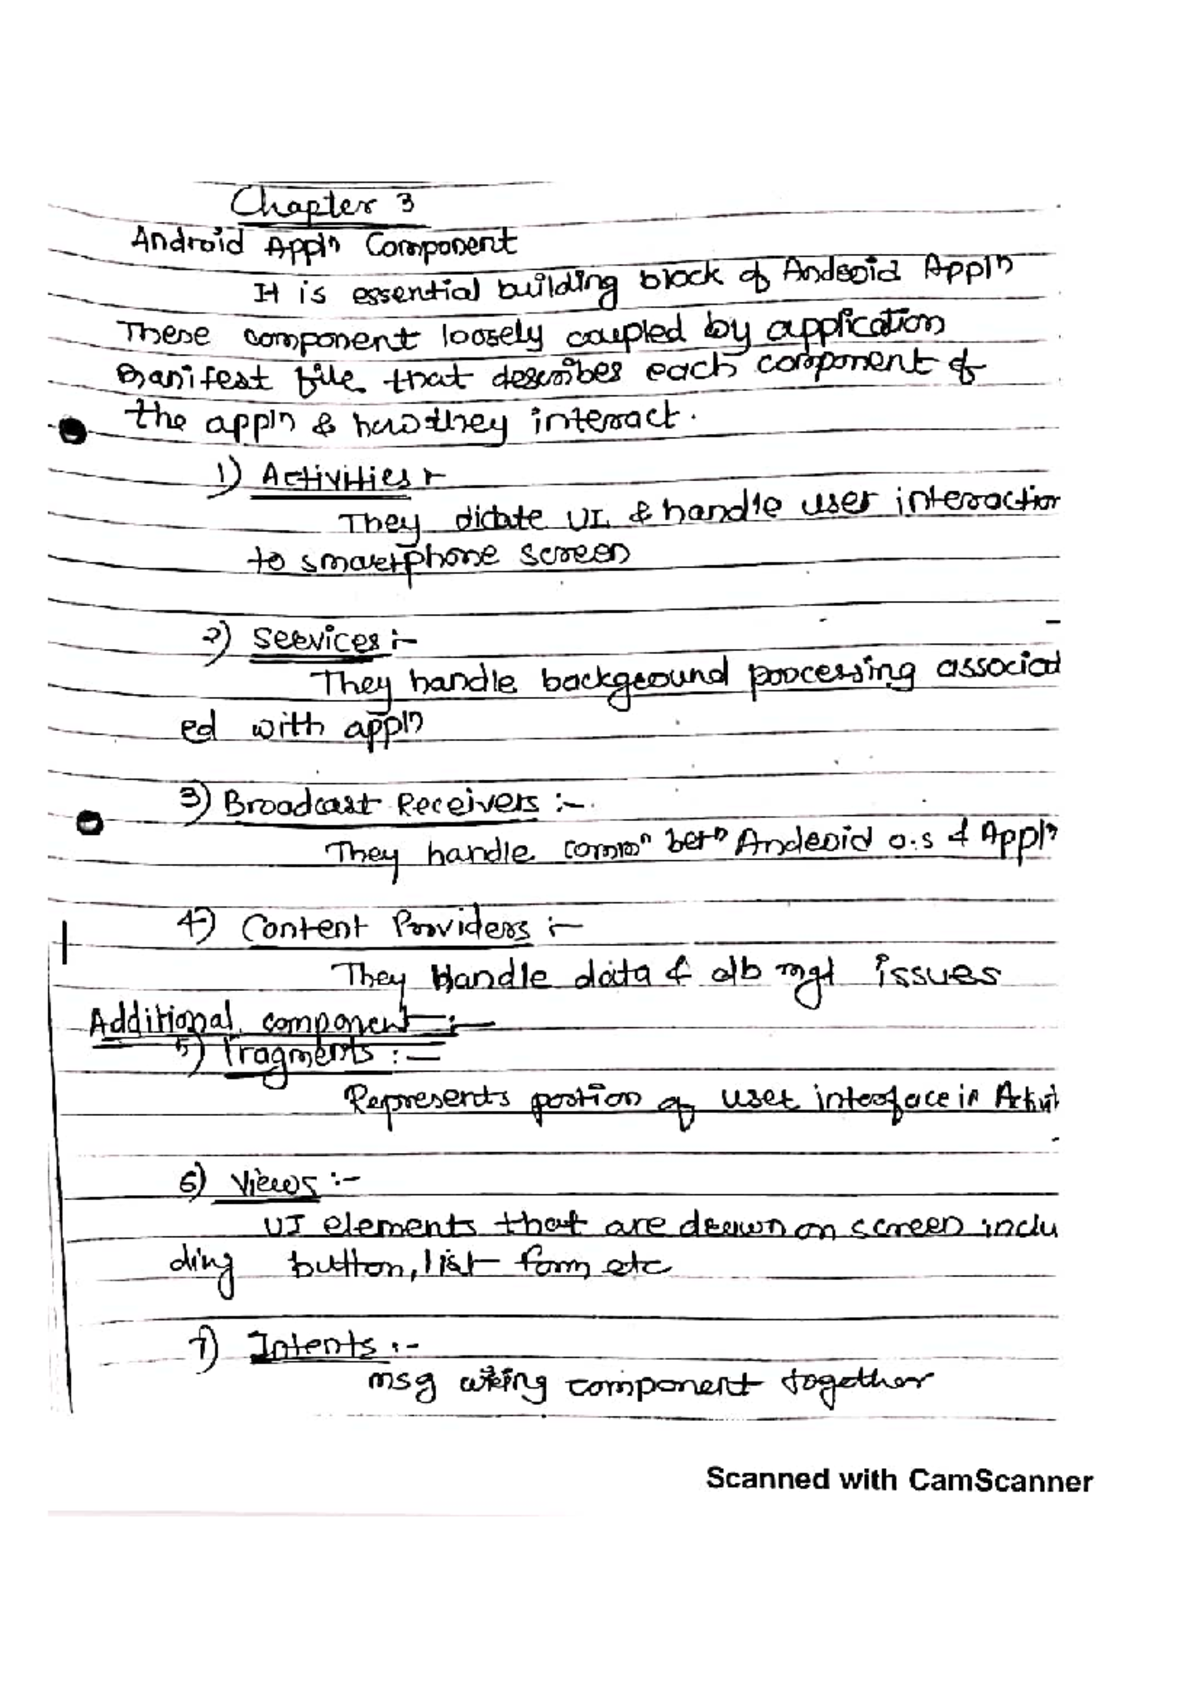 Chapter 3
Android Appln Component
It is essential building block of Android Appln
These component loosely coupled by application
manifest file that describes each component of
the appln & how they interact.
1) Activities :-
They dictate UI & handle user interaction
to smartphone screen
2) Services :-
They handle background processing associat
ed with appln
3) Broadcast Receivers :-
They handle commn betn Android O.S & Appln
4) Content Providers :-
They Handle data & d/b mgt issues
Additional component :-
5) Fragments :-
Represents portion of user interface in Activi
6) Views :-
UI elements that are drawn on screen inclu
ding button, list form etc
7) Intents :-
msg wiring component together
Scanned with CamScanner